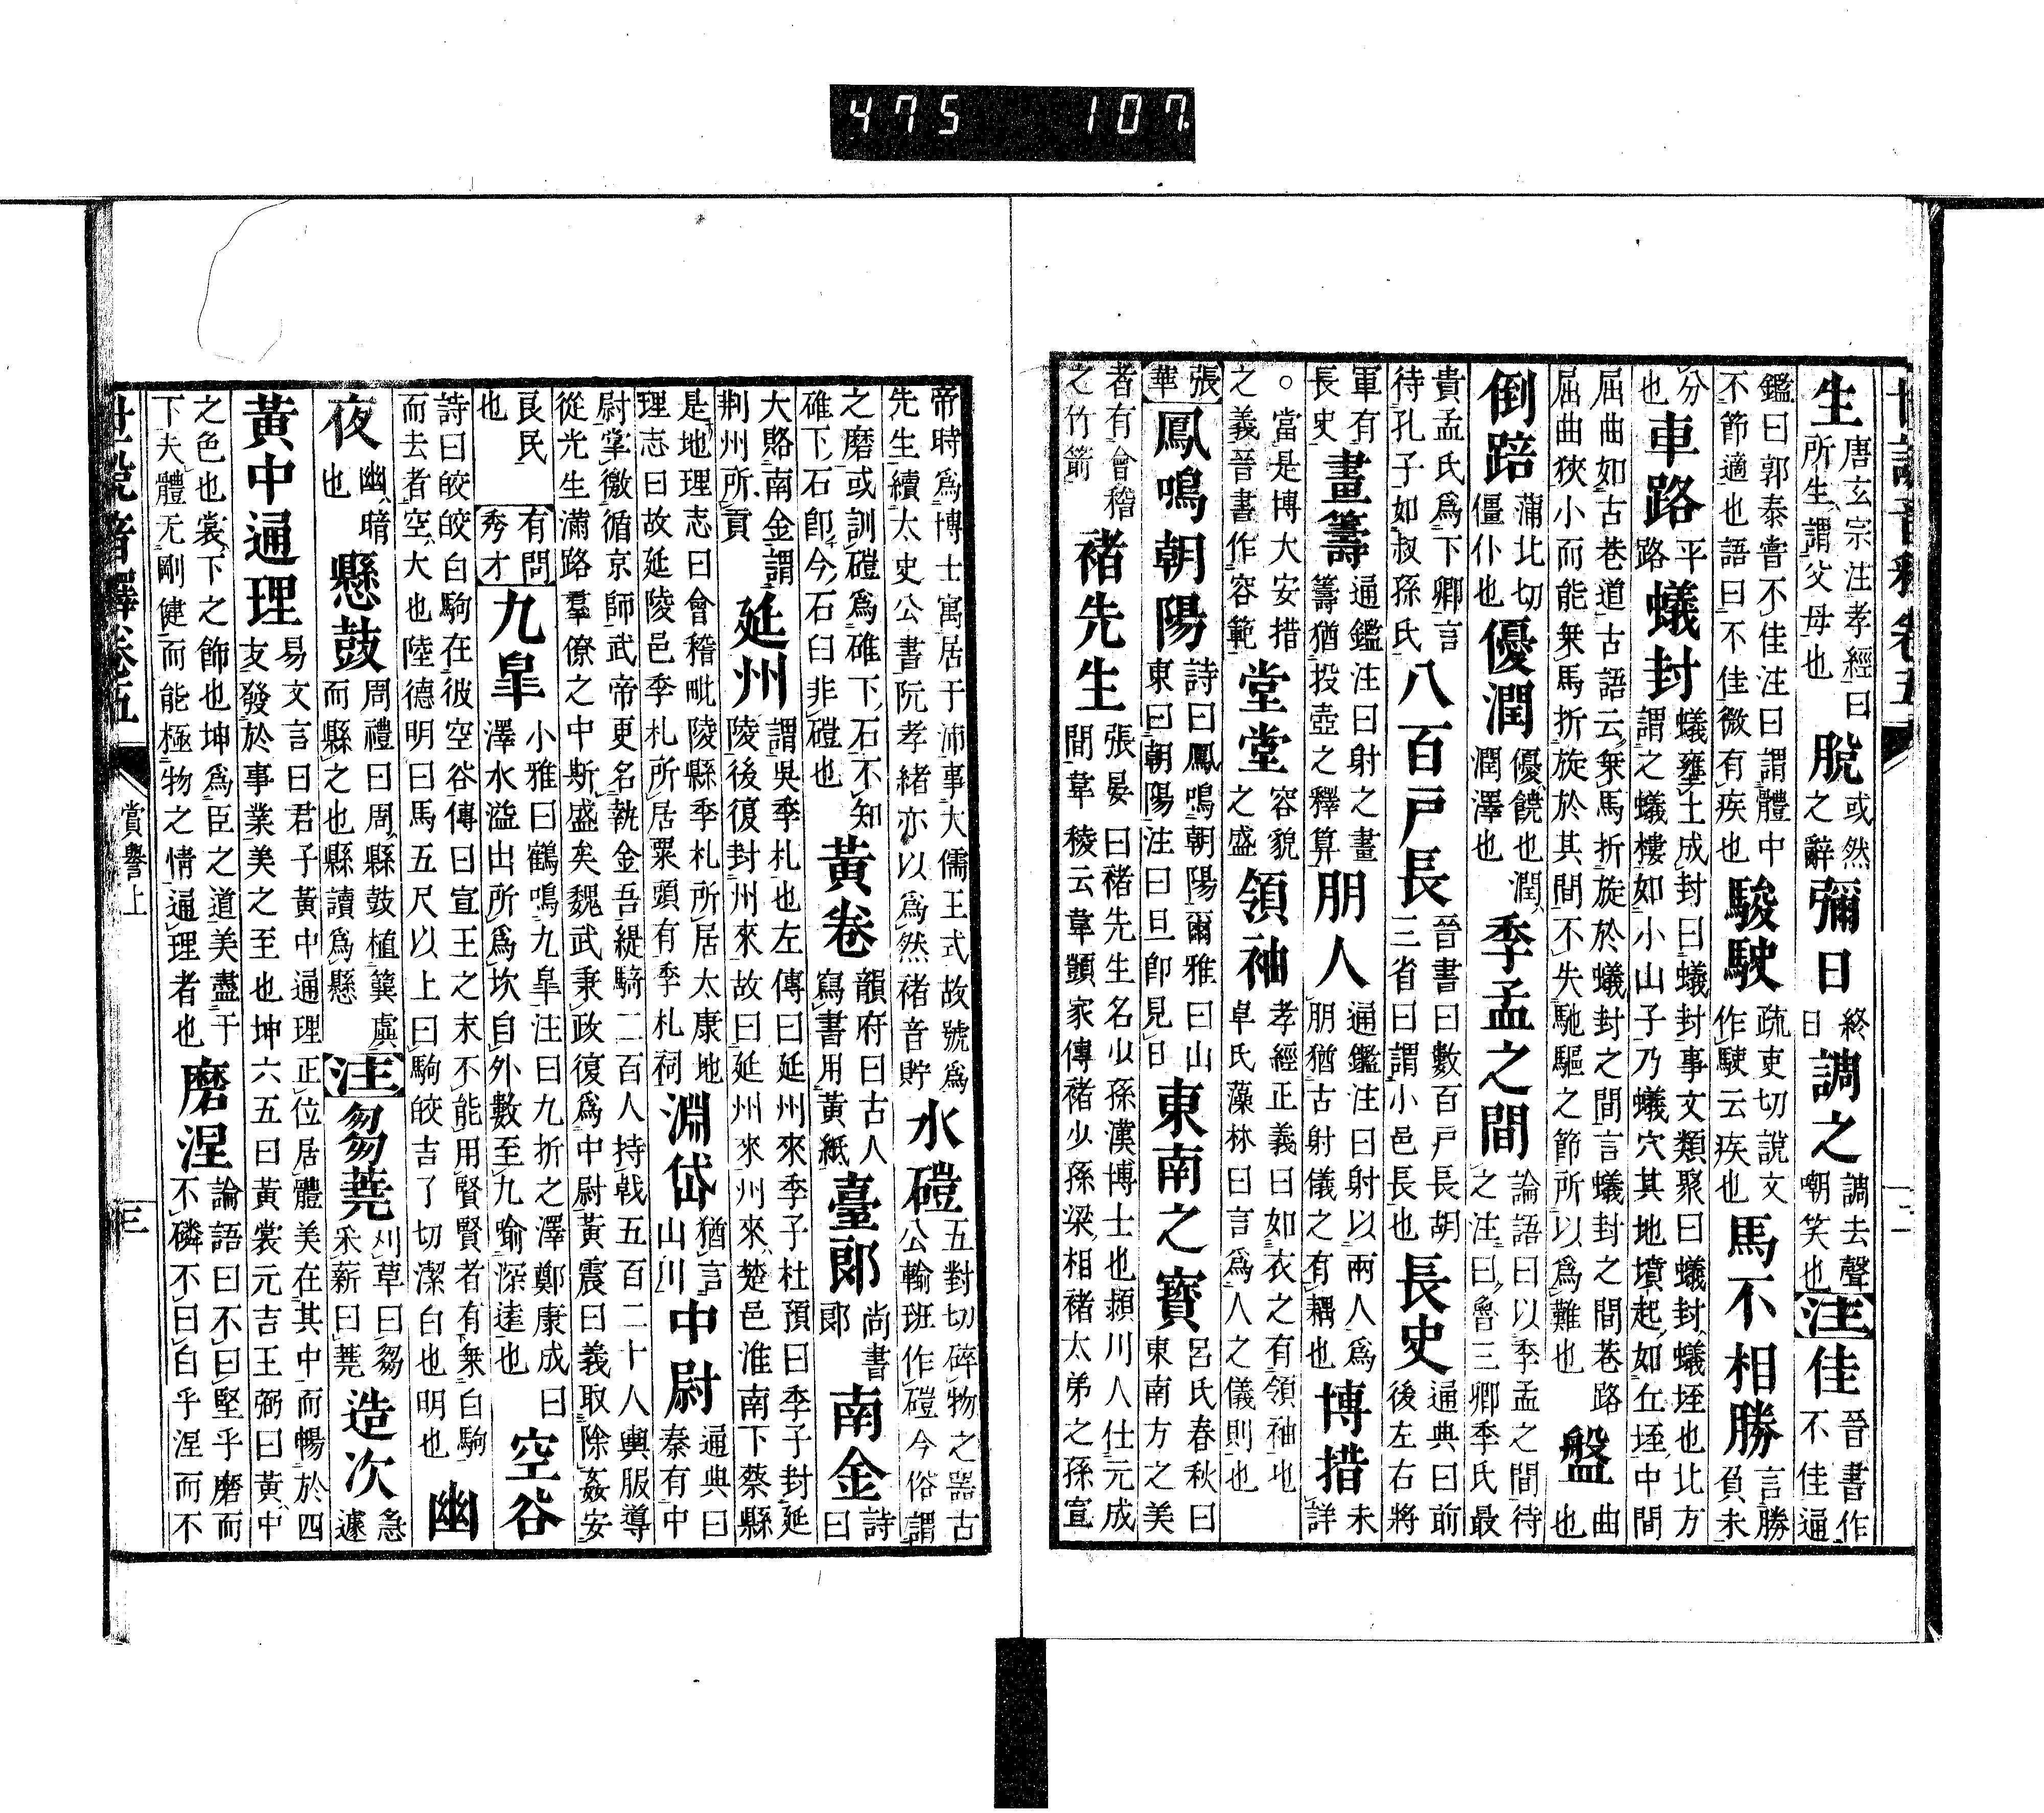 世說音釋卷五　二
生
唐玄宗注孝經曰
所生謂父母也
脫
或然
之辭
彌日
終
日
調之
調去聲
嘲笑也
注
佳
晉書作
不佳通
鑑曰郭泰嘗不佳注曰謂體中
不節適也語曰不佳微有疾也
駿駛
疏吏切說文
作駛云疾也
馬不相勝
言勝
負未
分
也
車路
平
路
蟻封
蟻壅土成封曰蟻封事文類聚曰蟻封蟻垤也北方
謂之蟻樓如小山子乃蟻穴其地墳起如丘垤中間
屈曲如古巷道古語云乗馬折旋於蟻封之間言蟻封之間巷路
屈曲狹小而能乗馬折旋於其間不失馳驅之節所以爲難也
盤
曲
也
倒踣
蒲北切
僵仆也
優潤
優饒也潤
潤澤也
季孟之間
論語曰以季孟之間待
之注曰魯三卿季氏最
貴孟氏爲下卿言
待孔子如叔孫氏
八百戸長
晉書曰數百戸長胡
三省曰謂小邑長也
長史
通典曰前
後左右將
軍有
長史
畫籌
通鑑注曰射之畫
籌猶投壺之釋算
朋人
通鑑注曰射以兩人爲
朋猶古射儀之有耦也
博措
未
詳
○當是博大安措
之義晉書作容範
堂堂
容貌
之盛
領袖
孝經正義曰如衣之有領袖也
卓氏藻林曰言爲人之儀則也
張
華
鳳鳴朝陽
詩曰鳳鳴朝陽爾雅曰山
東曰朝陽注曰旦卽見日
東南之寶
呂氏春秋曰
東南方之美
者有會稽
之竹箭
褚先生
張晏曰褚先生名少孫漢博士也潁川人仕元成
間韋稜云韋顗家傳褚少孫梁相褚大弟之孫宣
帝時爲博士寓居于沛事大儒王式故號爲
先生續太史公書阮孝緒亦以爲然褚音貯
水磑
五對切碎物之器古
公輸班作磑今俗謂
之磨或訓磑爲碓下石不知
碓下石卽今石臼非磑也
黃卷
韻府曰古人
寫書用黃紙
臺郞
尚書
郞
南金
詩
曰
大賂南金謂
荆州所貢
延州
謂吳季札也左傳曰延州來季子杜預曰季子封延
陵後復封州來故曰延州來州來楚邑淮南下蔡縣
是地理志曰會稽毗陵縣季札所居太康地
理志曰故延陵邑季札所居粟頭有季札祠
淵岱
猶言
山川
中尉
通典曰
秦有中
尉掌徼循京師武帝更名執金吾緹騎二百人持戟五百二十人輿服導
從光生滿路羣僚之中斯盛矣魏武秉政復爲中尉黃震曰義取除姦安
良民
也
有問
秀才
九臯
小雅曰鶴鳴九臯注曰九折之澤鄭康成曰
澤水溢出所爲坎自外數至九喻深遠也
空谷
詩曰皎皎白駒在彼空谷傳曰宣王之末不能用賢賢者有乗白駒
而去者空大也陸德明曰馬五尺以上曰駒皎古了切潔白也明也
幽
夜
幽暗
也
懸鼓
周禮曰周縣鼓植簨虡
而縣之也縣讀爲懸
注
芻蕘
刈草曰芻
采薪曰蕘
造次
急
遽
黃中通理
易文言曰君子黃中通理正位居體美在其中而暢於四
支發於事業美之至也坤六五曰黃裳元吉王弼曰黃中
之色也裳下之飾也坤爲臣之道美盡于
下夫體无剛健而能極物之情通理者也
磨涅
論語曰不曰堅乎磨而
不磷不曰白乎涅而不
世說音釋卷五　賞譽上　三
475　107.